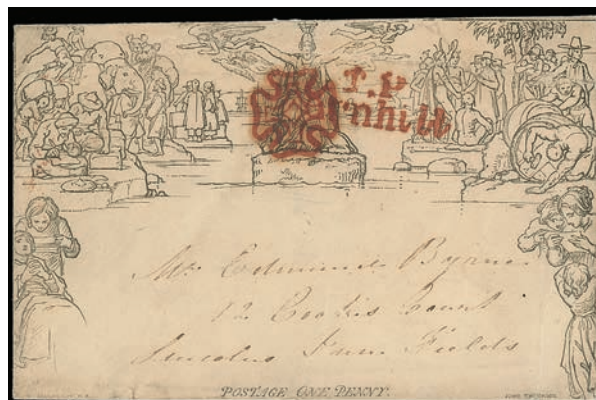 T.P
Cornhill
Mr Edmund Byrne
12 Cooks Court
Lincolns Inn Fields
POSTAGE ONE PENNY.